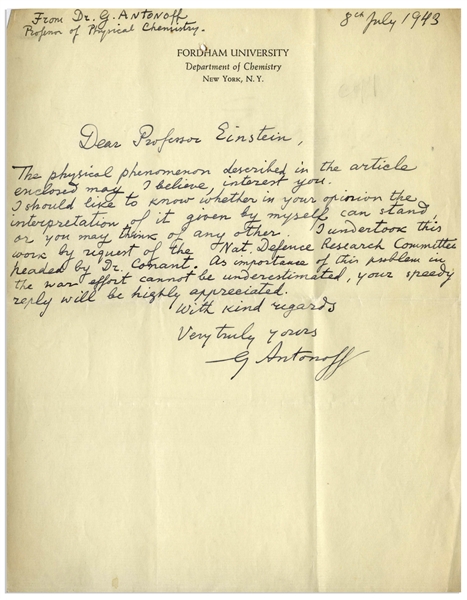 From Dr. G. Antonoff
Professor of Physical Chemistry.
8th July 1943
FORDHAM UNIVERSITY
Department of Chemistry
NEW YORK, N. Y.
Dear Professor Einstein,
The physical phenomenon described in the article
enclosed may I believe, interest you.
I should like to know whether in your opinion the
interpretation of it given by myself can stand,
or you may think of any other. I undertook this
work by request of the Nat Defence Research Committee
headed by Dr. Conant. As importance of this problem in
the war effort cannot be underestimated, your speedy
reply will be highly appreciated.
With kind regards
Very truly yours
G Antonoff